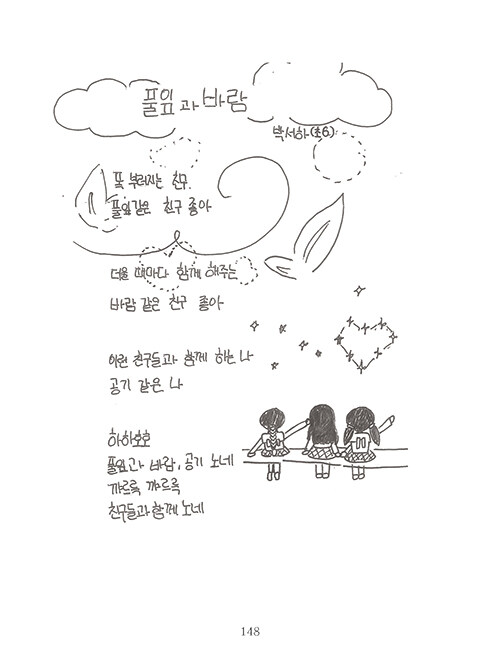 풀잎과 바람
박서하(초6)
똑 부러지는 친구.
풀잎같은 친구 좋아
더울 때마다 함께 해주는
바람 같은 친구 좋아
이런 친구들과 함께 하는 나
공기 같은 나
하하호호
풀잎과 바람, 공기 노네
까르륵 까르륵
친구들과 함께 노네
148